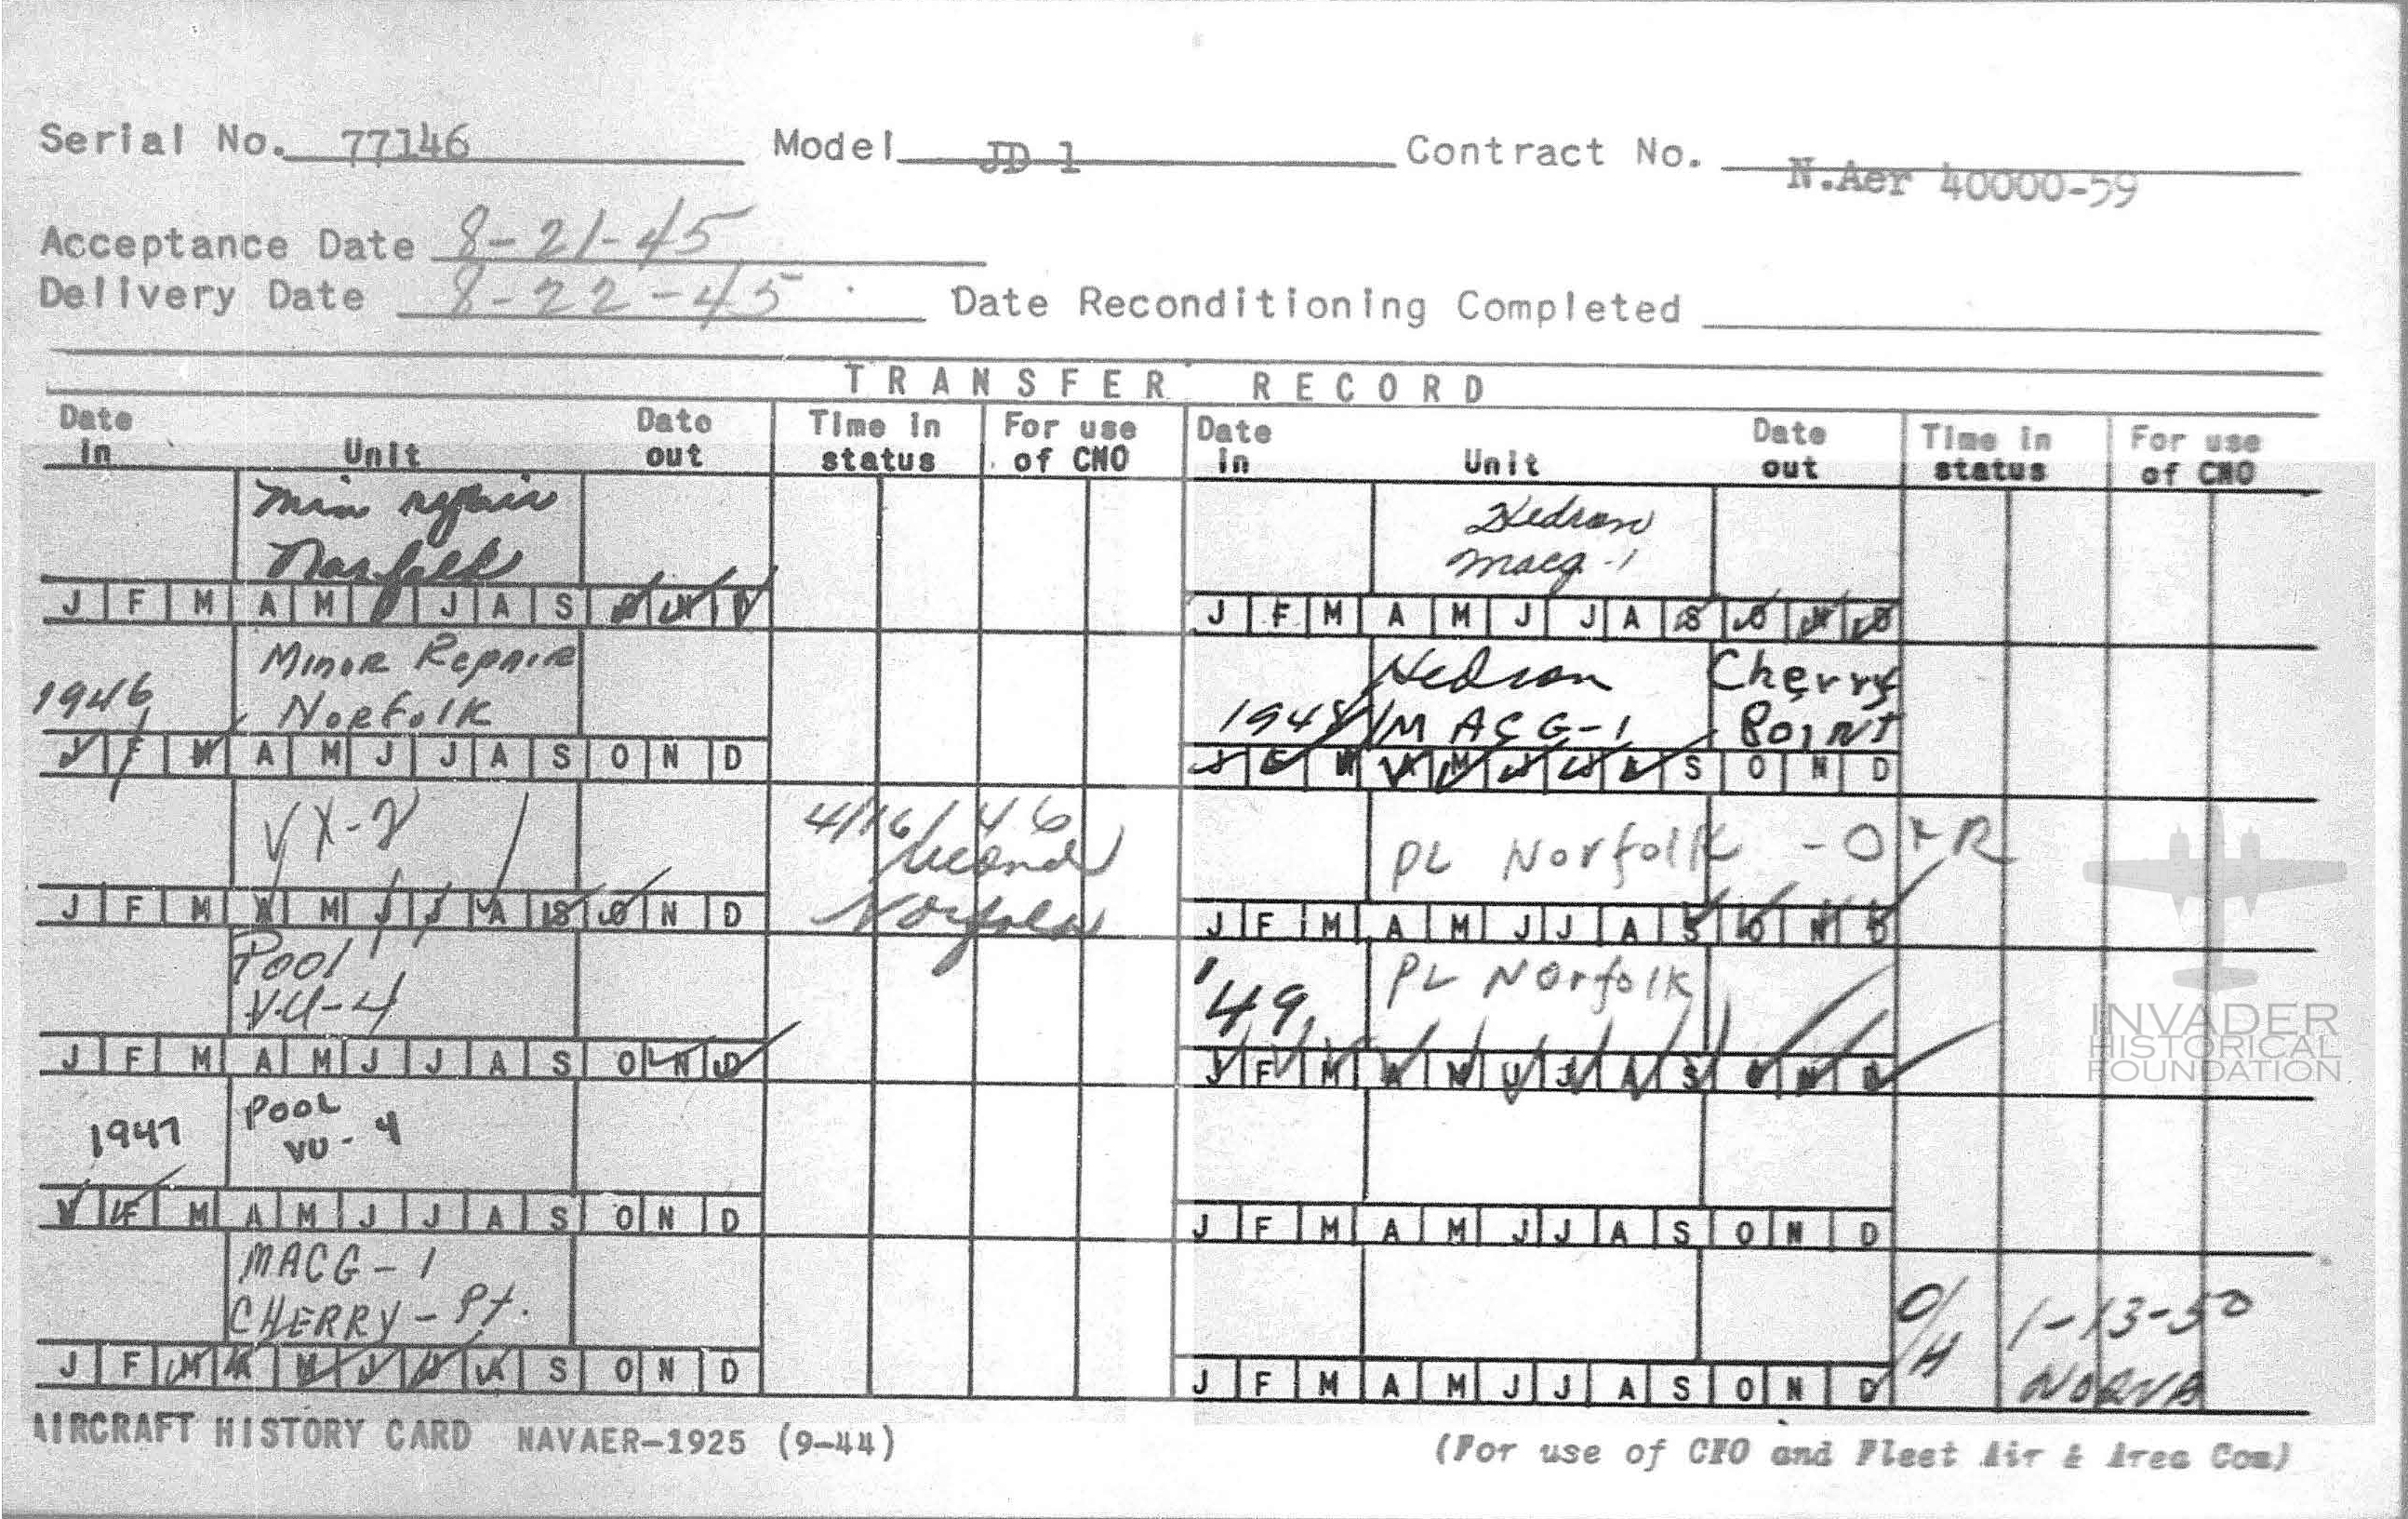 Serial No. 77146 Model JD 1 Contract No. N.Aer 40000-59
Acceptance Date 8-21-45
Delivery Date 8-22-45 Date Reconditioning Completed
TRANSFER RECORD
Date in Unit Date out Time in status For use of CNO
Min repair
Norfolk
J F M A M J J A S O N D
1946 Minor Repair
Norfolk
J F M A M J J A S O N D
VX-2 4/16/46
Norfolk
J F M A M J J A S O N D
Pool
VU-4
J F M A M J J A S O N D
1947 Pool
VU-4
J F M A M J J A S O N D
MACG-1
CHERRY-Pt.
J F M A M J J A S O N D
Date in Unit Date out Time in status For use of CNO
Hedron
Macg-1
J F M A M J J A S O N D
Hedron Cherry
1948 MACG-1 Point
J F M A M J J A S O N D
PL Norfolk - O + R
J F M A M J J A S O N D
'49 PL Norfolk
J F M A M J J A S O N D
J F M A M J J A S O N D
O/H 1-13-50
NORVA
J F M A M J J A S O N D
INVADER
HISTORICAL
FOUNDATION
AIRCRAFT HISTORY CARD NAVAER-1925 (9-44)
(For use of CNO and Fleet Air & Area Com)